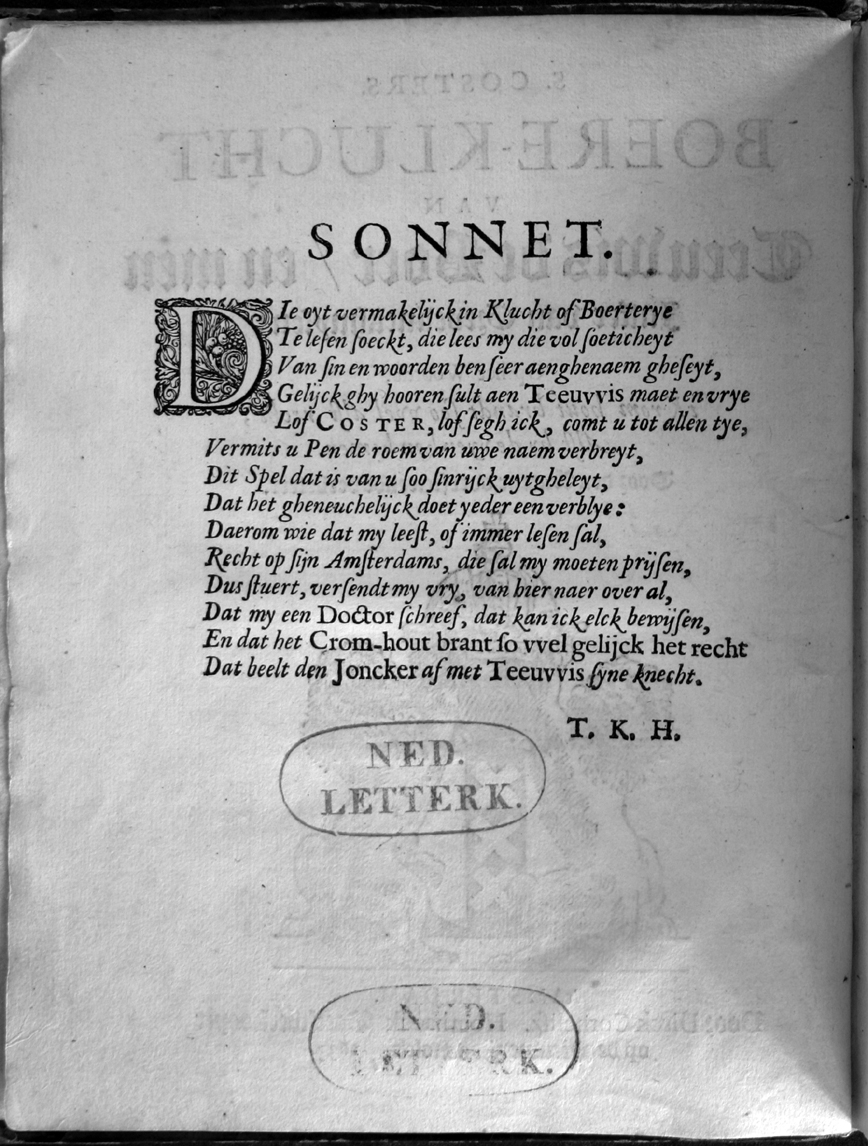 SONNET.
DIe oyt vermakelijck in Klucht of Boerterye
Te leſen ſoeckt, die lees my die vol ſoeticheyt
Van ſin en woorden ben ſeer aenghenaem gheſeyt,
Gelijck ghy hooren ſult aen Teeuvvis maet en vrye
Lof COSTER, lof ſegh ick, comt u tot allen tye,
Vermits u Pen de roem van uwe naem verbreyt,
Dit Spel dat is van u ſoo ſinrijck uytgheleyt,
Dat het gheneuchelijck doet yeder een verblye:
Daerom wie dat my leeſt, of immer leſen ſal,
Recht op ſijn Amſterdams, die ſal my moeten prijſen,
Dus ſtuert, verſendt my vry, van hier naer over al,
Dat my een Doctor ſchreef, dat kan ick elck bewijſen,
En dat het Crom-hout brant ſo vvel gelijck het recht
Dat beelt den Joncker af met Teeuvvis ſyne knecht.
T. K. H.
NED.
LETTERK.
S. COSTERS
BOERE-KLUCHT
VAN
NED.
LETTERK.